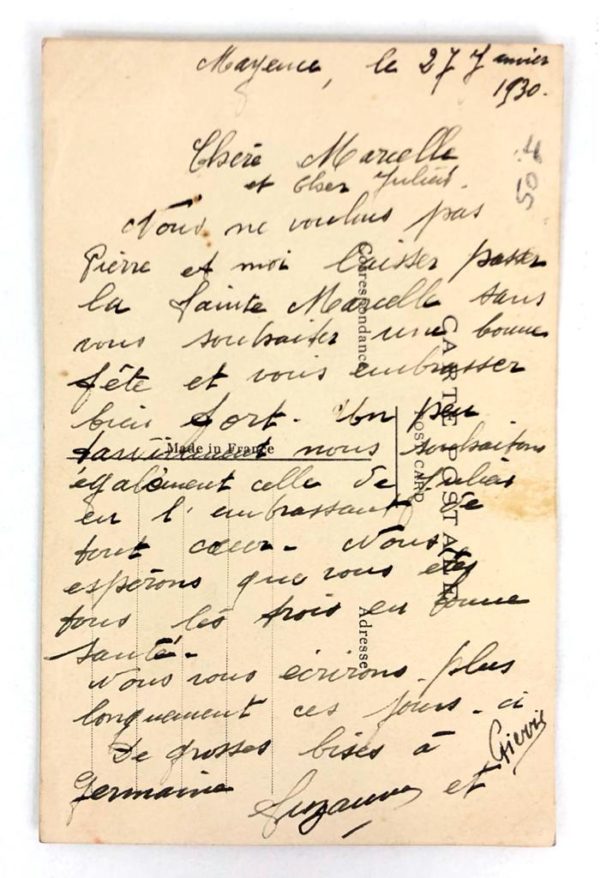 Mayence, le 27 Janvier
1930.
Chère Marcelle
et Cher Julien.
Nous ne voulons pas
Pierre et moi laisser passer
la Sainte Marcelle sans
vous souhaiter une bonne
fête et vous embrasser
bien fort. Un peu
tardivement nous souhaitons
également celle de Julien
en l'embrassant de
tout cœur. Nous
espérons que vous êtes
tous les trois en bonne
santé.
Nous vous écrirons plus
longuement ces jours-ci
De grosses bises à
Germaine
Suzanne et Pierre
50
CARTE POSTALE
POST CARD
Correspondance
Adresse
Made in France